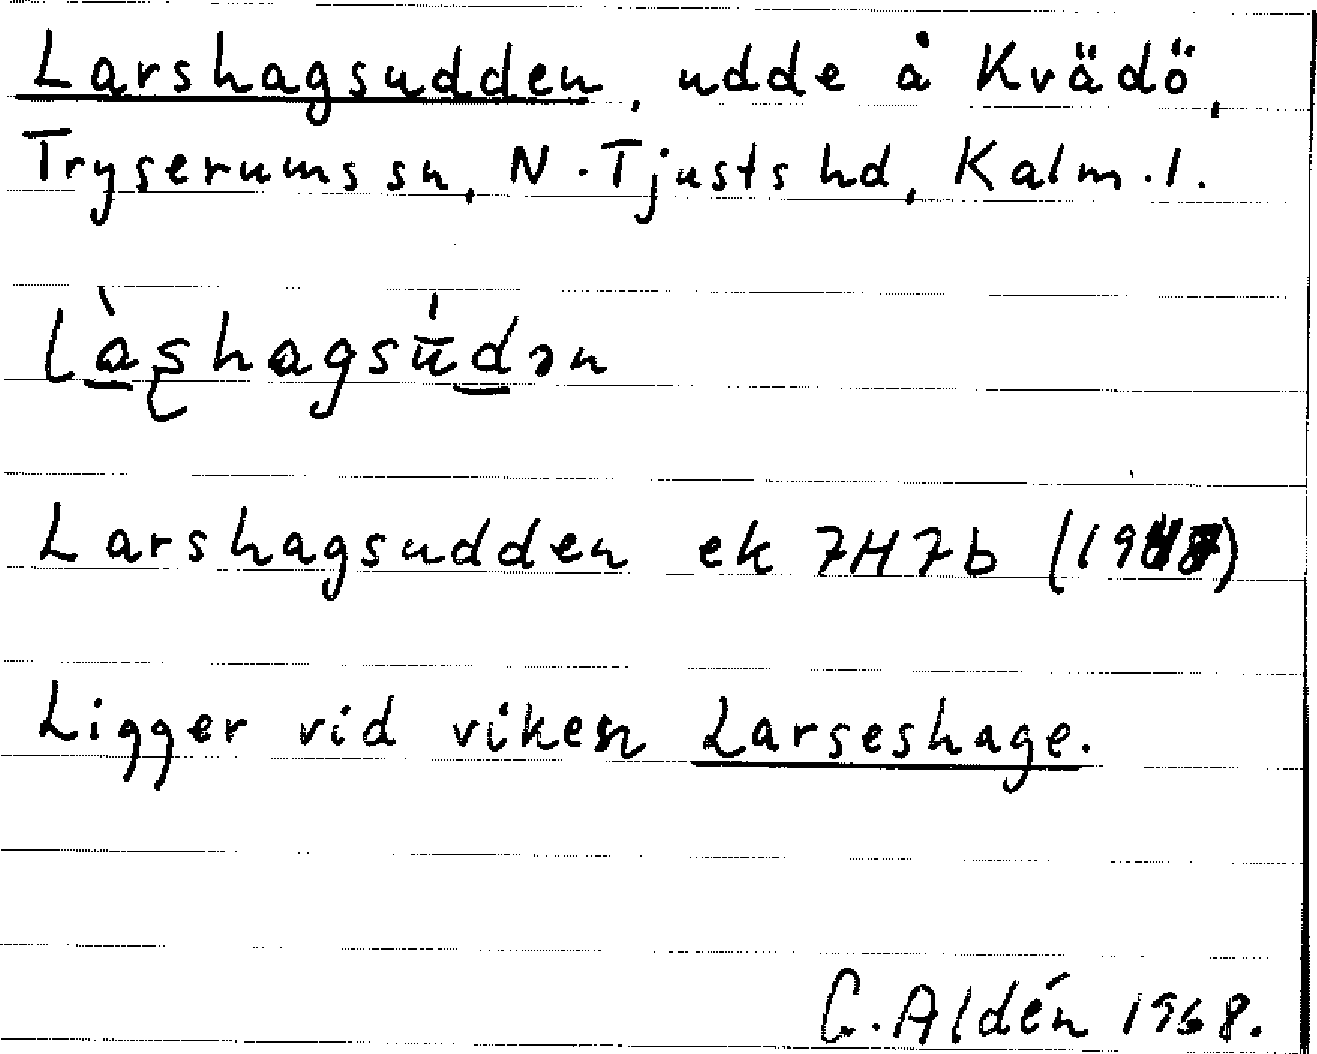 Larshagsudden, udde å Kvädö,
Tryserums sn, N. Tjusts hd, Kalm. l.
là̱ʂhagsū́ḏən
Larshagsudden ek 7H7b
Ligger vid viken Larseshage.
C. Aldén 1968.